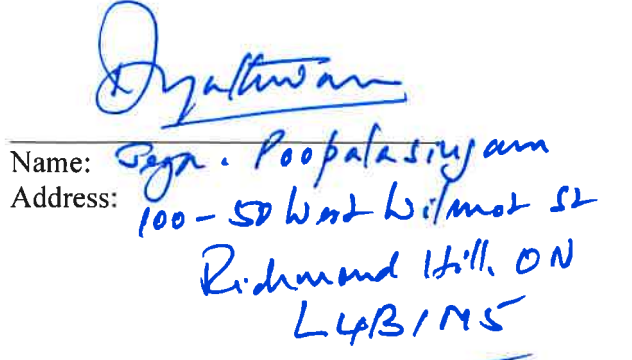 Name: Jega. Poopalasingam
Address:
100-50 West Wilmot St
Richmond Hill, ON
L4B1M5